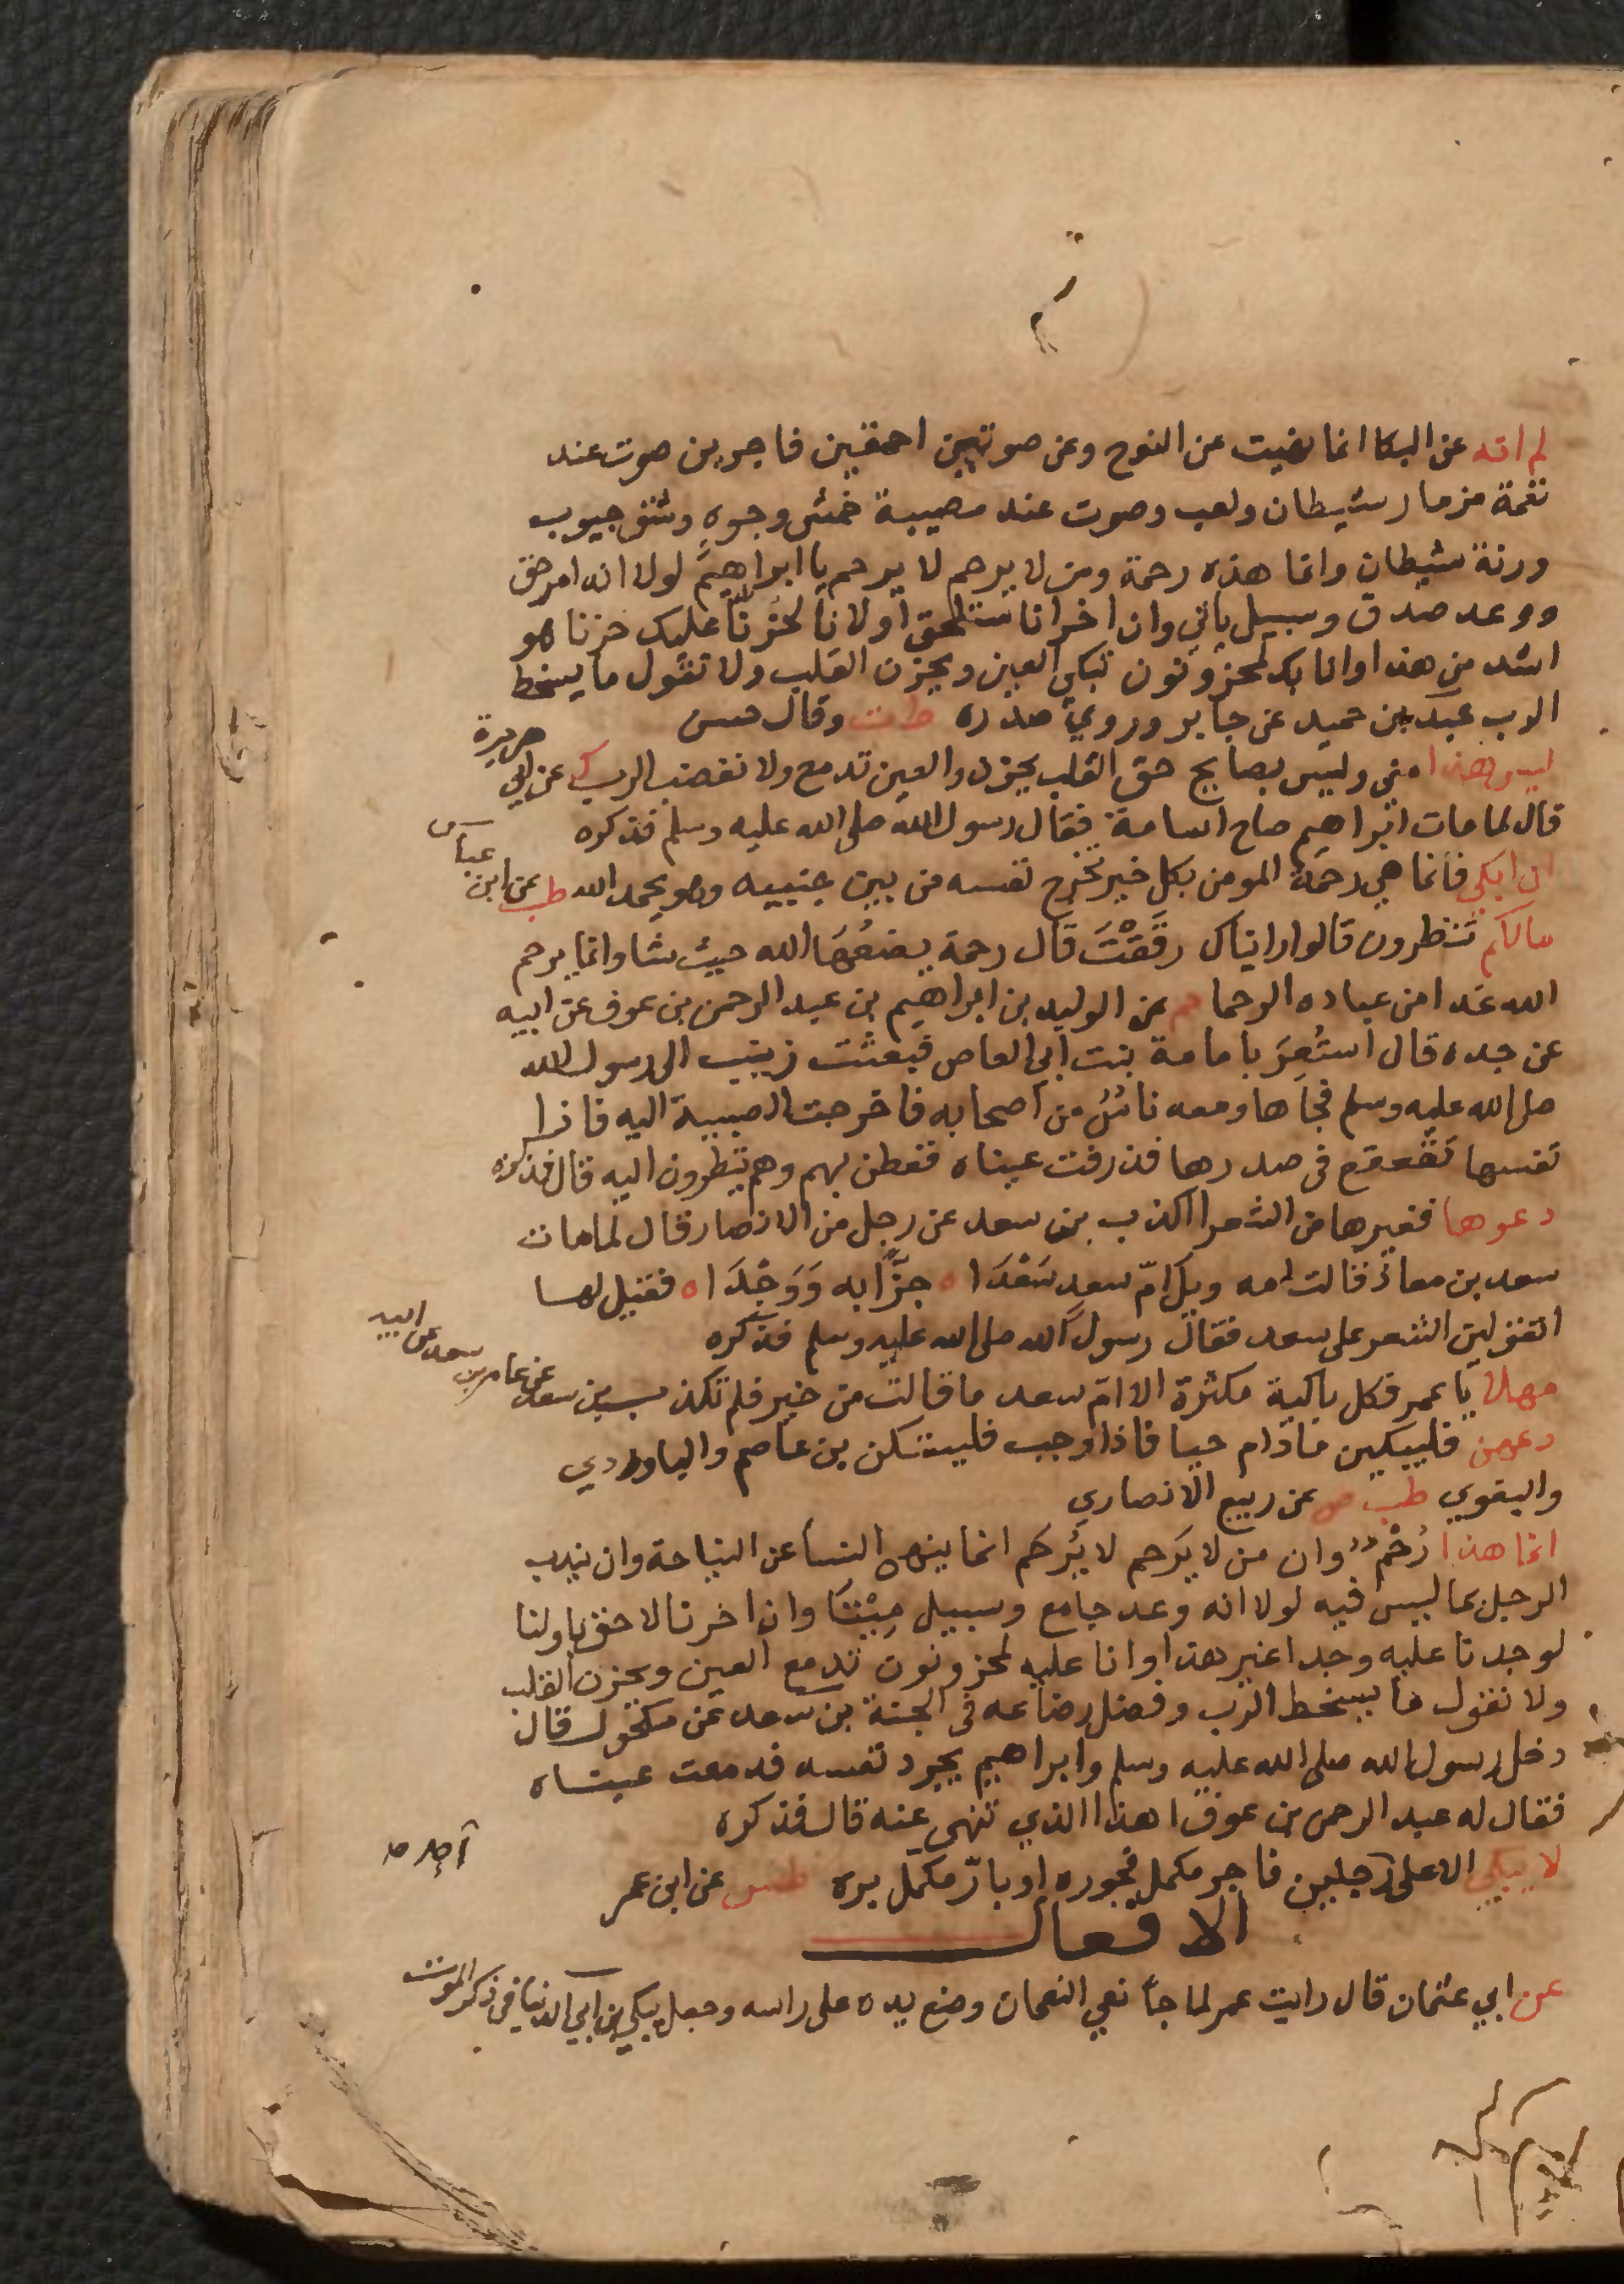 لم انه عن البكا انما نهيت عن النوح وعن صوتين احمقين فاجرين صوت عند
نغمة مزمار شيطان ولعب وصوت عند مصيبة خمش وجوه وشق جيوب
ورنة شيطان وانما هذه رحمة ومن لا يرحم لا يرحم يا ابراهيم لولا انه امر حق
ووعد صدق وسبيل ياتي وان اخرانا ستلحق اولانا لحزنا عليك حزنا هو
اشد من هذا وانا بك لمحزونون تبكي العين ويحزن القلب ولا نقول ما يسخط
الرب عبد بن حميد عن جابر وروى صدره ط ت وقال حسن
ليس هذا مني وليس بصايح حق القلب يحزن والعين تدمع ولا نغضب الرب ك عن ابي هريرة
قال لما مات ابراهيم صاح اسامة فقال رسول الله صلى الله عليه وسلم فذكره
ان ابكي فانما هي رحمة المومن بكل خير تخرج نفسه من بين جنبيه وهو يحمد الله طب عن ابن عباس
مالكم تنظرون قالوا رايناك رققت قال رحمة يضعها الله حيث شا وانما يرحم
الله غدا من عباده الرحما عن الوليد بن ابراهيم بن عبد الرحمن بن عوف عن ابيه
عن جده قال استعز بامامة بنت ابي العاص فبعثت زينب الى رسول الله
صلى الله عليه وسلم فجاها ومعه ناس من اصحابه فاخرجت الصبية اليه فاذا
نفسها تقعقع في صدرها فذرفت عيناه ففطن بهم وهم ينظرون اليه قال فذكره
دعوها فغيرها من الشعرا اكذب بن سعد عن رجل من الانصار قال لما مات
سعد بن معاذ قالت امه ويل ام سعد سعدا ه جزا به ووجدا ه فقيل لها
اتقولين الشعر على سعد فقال رسول الله صلى الله عليه وسلم فذكره
مهلا يا عمر فكل باكية مكثرة الا ام سعد ما قالت من خير فلم تكذب بن سعد عن عامر بن سعد عن ابيه
دعهن فليبكين مادام حيا فاذا وجب فليسكتن بن عاصم والباوردي
والبغوي طب ض عن ربيع الانصاري
انما هذا رحم وان من لا يرحم لا يرحم انما ينهى النسا عن النياحة وان يندب
الرجل بما ليس فيه لولا انه وعد جامع وسبيل ميتا وان اخرنا لاحق باولنا
لوجدنا عليه وجدا غير هذا وانا عليه لمحزونون تدمع العين ويحزن القلب
ولا نقول ما يسخط الرب وفضل رضاعه في الجنة بن سعد عن مكحول قال
دخل رسول الله صلى الله عليه وسلم وابراهيم يجود نفسه فدمعت عيناه
فقال له عبد الرحمن بن عوف اهذا الذي تنهى عنه قال فذكره
لا يبكي الا على رجلين فاجر مكمل فجوره او بار مكمل بره طس عن ابن عمر
الافعال
عن ابي عثمان قال رايت عمر لما جا نعي النعمان وضع يده على راسه وجعل يبكي بن ابي الدنيا في ذكر الموت